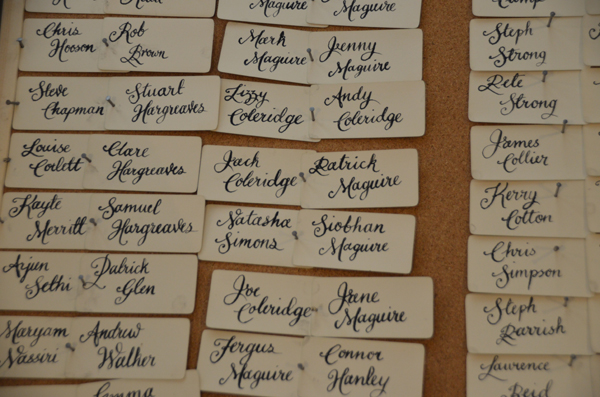 Maguire
Maguire
Chris
Hooson
Rob
Brown
Steve
Chapman
Stuart
Hargreaves
Louise
Corlett
Clare
Hargreaves
Kayte
Merritt
Samuel
Hargreaves
Arjun
Sethi
Patrick
Glen
Maryam
Nassiri
Andrew
Walker
Emma
Mark
Maguire
Jenny
Maguire
Lizzy
Coleridge
Andy
Coleridge
Jack
Coleridge
Patrick
Maguire
Natasha
Simons
Siobhan
Maguire
Joe
Coleridge
Jane
Maguire
Fergus
Maguire
Connor
Hanley
Steph
Strong
Pete
Strong
James
Collier
Kerry
Cotton
Chris
Simpson
Steph
Parrish
Laurence
Reid